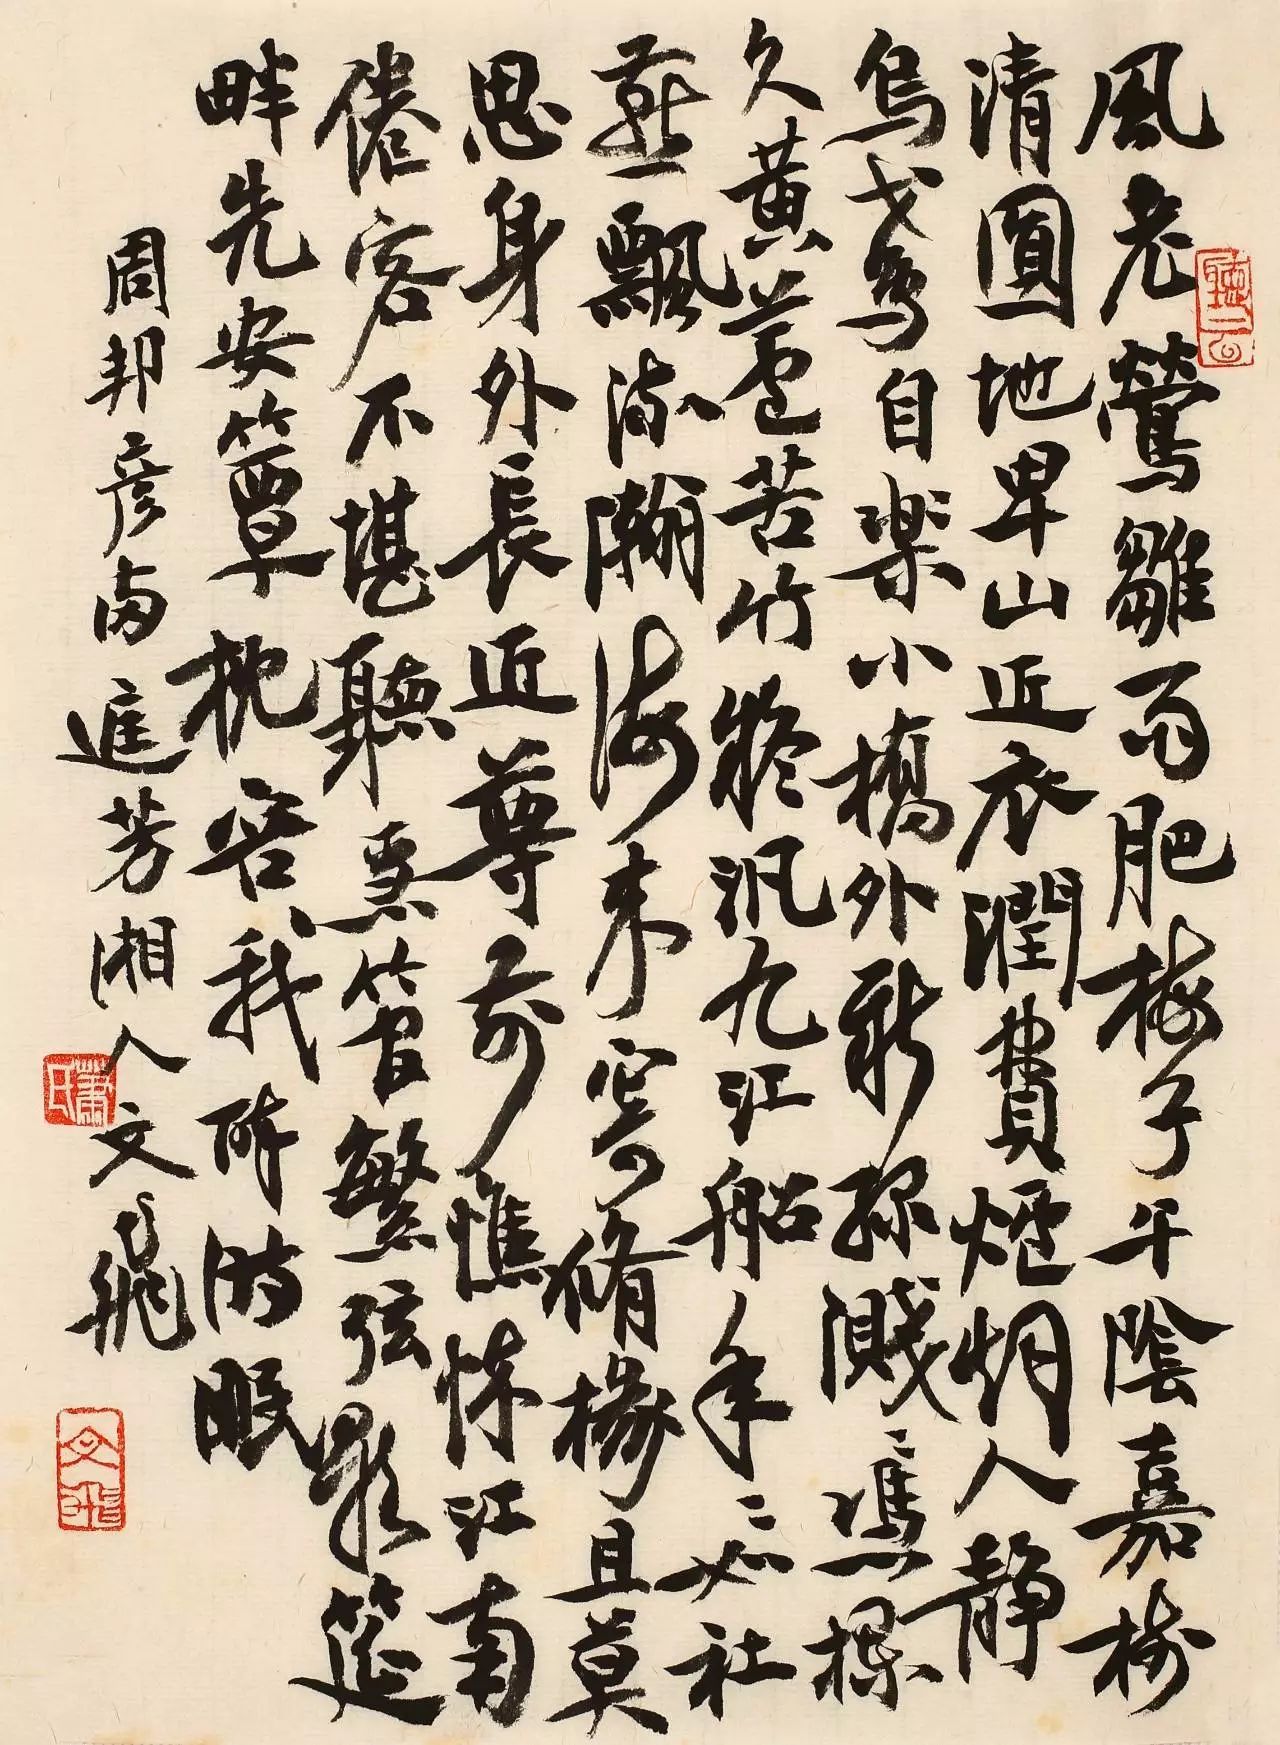 風老鶯雛雨肥梅子午陰嘉樹
清圓地卑山近衣潤費爐烟人靜
烏鳶自樂小橋外新綠濺〻憑欄
久黃蘆苦竹擬汎九江船年〻如社
燕飄流瀚海來寄脩椽且莫
思身外長近尊前憔悴江南
倦客不堪聽急管繁弦歌筵
畔先安簟枕容我醉時眠
周邦彥滿庭芳湘人文飛
蕭氏
文飛